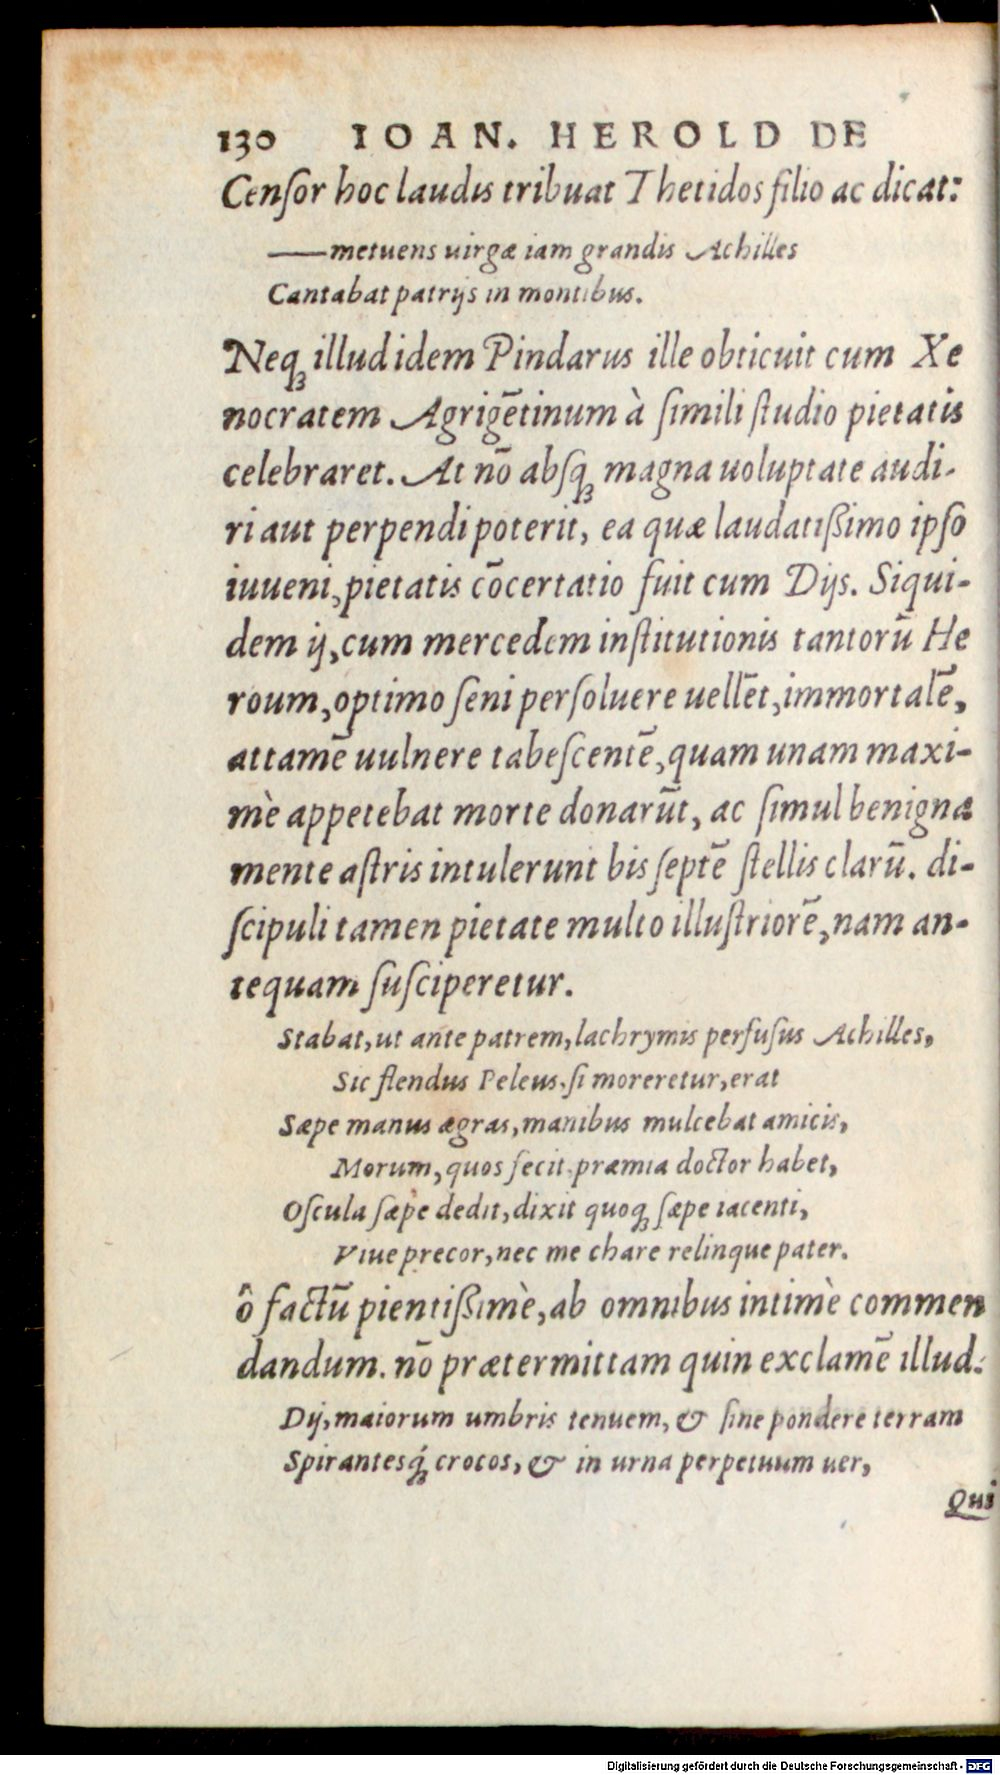 130 IOAN. HEROLD DE
Cenſor hoc laudis tribuat Thetidos filio ac dicat:
——metuens uirgæ iam grandis Achilles
Cantabat patrijs in montibus.
Neqꝫ illud idem Pindarus ille obticuit cum Xe
nocratem Agrigẽtinum à ſimili ſtudio pietatis
celebraret. At nõ abſqꝫ magna uoluptate audi-
ri aut perpendi poterit, ea quæ laudatißimo ipſo
iuueni, pietatis cõcertatio fuit cum Dijs. Siqui-
dem ij, cum mercedem inſtitutionis tantorũ He
roum, optimo ſeni perſoluere uellẽt, immortalẽ,
attamẽ uulnere tabeſcentẽ, quam unam maxi-
mè appetebat morte donarũt, ac ſimul benigna
mente aſtris intulerunt bis ſeptẽ ſtellis clarũ. di-
ſcipuli tamen pietate multo illuſtriorẽ, nam an-
tequam ſuſciperetur.
Stabat, ut ante patrem, lachrymis perfuſus Achilles,
Sic flendus Peleus, ſi moreretur, erat
Sæpe manus ægras, manibus mulcebat amicis,
Morum, quos fecit præmia doctor habet,
Oſcula ſæpe dedit, dixit quoqꝫ ſæpe iacenti,
Viue precor, nec me chare relinque pater.
ô factũ pientißimè, ab omnibus intimè commen
dandum. nõ prætermittam quin exclamẽ illud:
Dij, maiorum umbris tenuem, & ſine pondere terram
Spirantesq́ꝫ crocos, & in urna perpetuum uer,
Qui
Digitalisierung gefördert durch die Deutsche Forschungsgemeinschaft - DFG